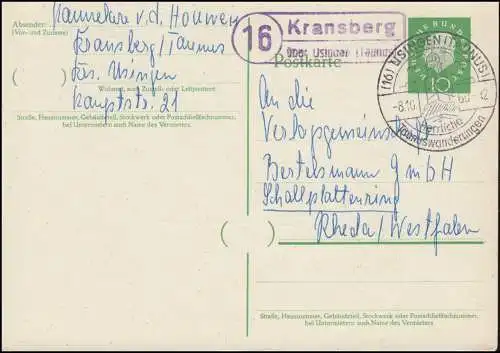 Absender: Hannelore v. d. Houwen
(Vor- und Zuname)
Kransberg/Taunus
Krs. Usingen
Wohnort, auch Zustell- oder Leitpostamt
Hauptstr. 21
Straße, Hausnummer, Gebäudeteil, Stockwerk oder Postschließfachnummer,
bei Untermietern auch Name des Vermieters.
16 Kransberg
über Usingen (Taunus)
Postkarte
DEUTSCHE BUNDESPOST
10
(16) USINGEN (TAUNUS)
-8.10. 60 -12
Herrliche
Taunuswanderungen
An die
Verlagsgemeinsch.
Bertelsmann GmbH
Schallplattenring
Rheda/Westfalen
Straße, Hausnummer, Gebäudeteil, Stockwerk oder Postschließfachnummer,
bei Untermietern auch Name des Vermieters